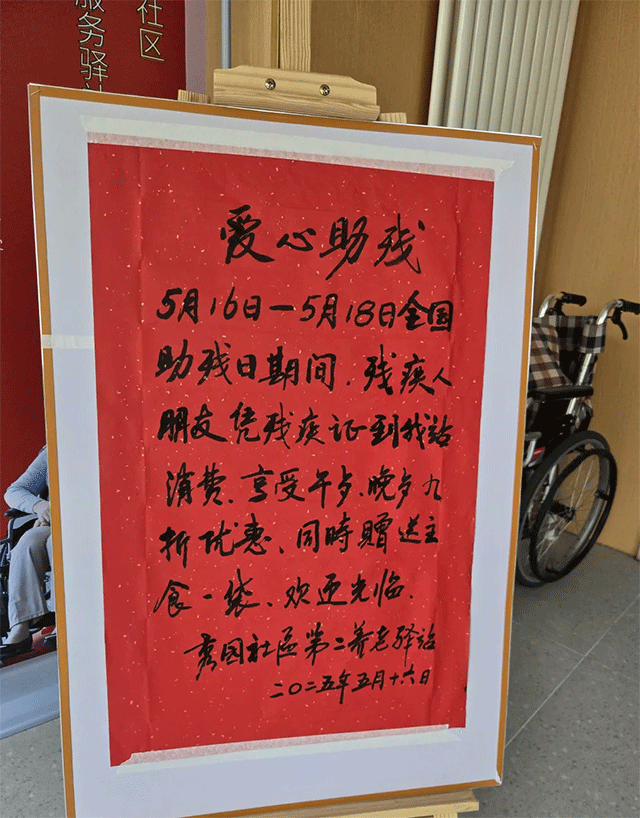 社区
服务驿站
爱心助残
5月16日一5月18日全国
助残日期间、残疾人
朋友凭残疾证到我站
消费、享受午歺、晚歺九
折优惠、同時赠送主
食一袋、欢迎光临.
秀园社区第二养老驿站
二〇二五年五月十六日